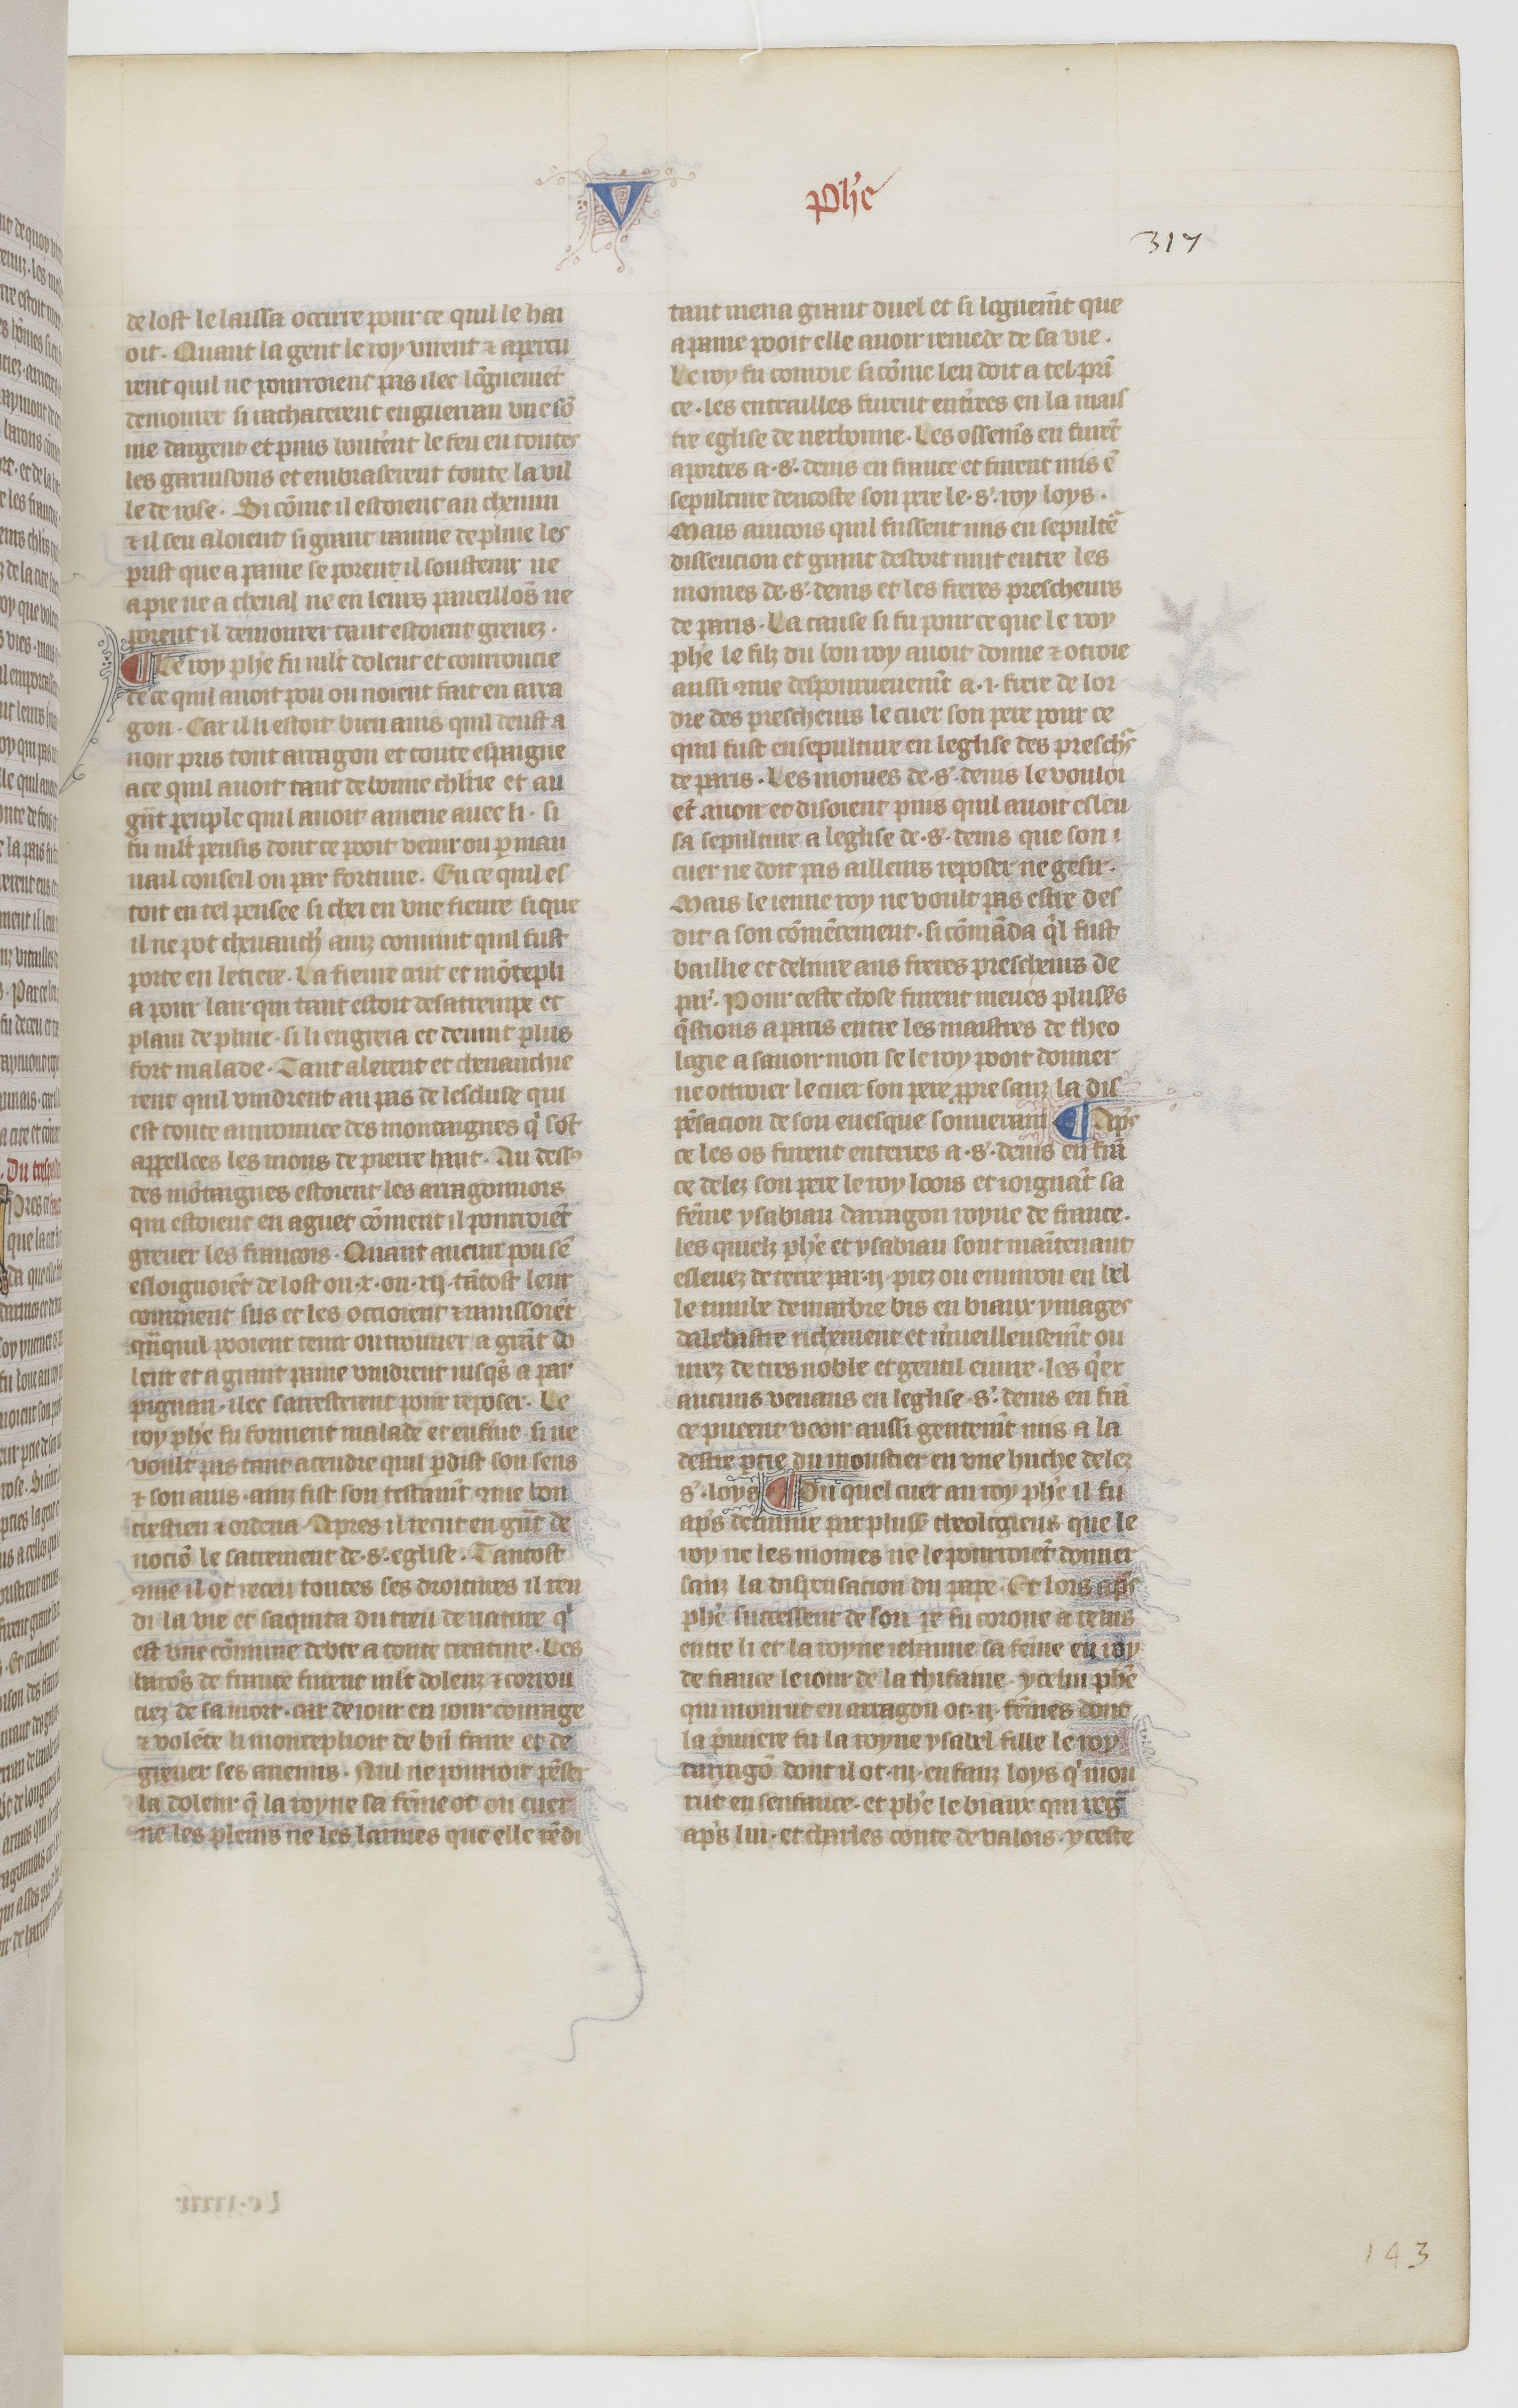 V
phe
317
de lost le laissa occirre pour ce quil le hai
oit. Quant la gent le roy virent ⁊ aperceu
rent quil ne pourroient pas ilec lõguemẽt
demourer si rachaterent enguerran vne sõ
me dargent et puis bouterent le feu en toutes
les garnisons et embraserent toute la vil
le de rose. Si cõme il estoient au chemin
⁊ il sen aloient si grant rauine de pluie les
prist que a paine se porent il soustenir ne
a pie ne a cheual ne en leurs paueillõs ne
porent il demourer tant estoient greuez.
¶ Le roy phe fu mlt dolent et courroucie
de ce quil auoit pou ou noient fait en arra
gon. Car il li estoit bien auis quil deust a
uoir pris tout arragon et toute espaigne
ace quil auoit tant de bonne chlrie et au
gñt peuple quil auoit amene auec li. si
fu mlt pensis dont ce pooit venir ou p mau
uais conseil ou par fortune. En ce quil es
toit en tel pensee si chei en vne fieure si que
il ne pot cheuauch' ainz conuint quil fust
porte en letiere. La fieure crut et mõtepli
a pour lair qui tant estoit desatrempe et
plain de pluie. si li engreia et deuint plus
fort malade. Tant alerent et cheuauchie
rent quil vindrent au pas de lescluse qui
est toute auironnee des montaignes q' sõt
appellees les mons de pierre haut. Au dess9
des mõtaignes estoient les arragonnois
qui estoient en aguet cõment il pourroiẽt
greuer les francois. Quant aucun pou sẽ
esloignoiẽt de lost ou .x. ou .xij. tãtost leur
couroient sus et les occioient ⁊ rauissoiẽt
qñquil pooient tenir ou trouuer a grãt do
leur et a grant paine vindrent iusqs a par
pignan. ilec sarresterent pour reposer. Le
roy phe fu forment malade et enferme si ne
voult pas tant atendre quil pdist son sens
⁊ son auis. ainz fist son testamt cõme bon
crestien ⁊ ordena. Apres il recut en gñt de
uociõ le sacrement de .s'. eglise. Tantost
cõme il ot receu toutes ses droitures il ren
di la vie et saquita du treu de nature q'
est vne cõmune debte a toute creature. Les
barõs de france furent mlt dolenz ⁊ corrou
ciez de sa mort. car de iour en iour courage
⁊ volẽte li monteplioit de biñ faire et de
greuer ses anemis. Nul ne pourroit pẽser
la doleur q̃ la royne sa fẽme ot ou cuer
ne les pleurs ne les larmes que elle rẽdi
tant mena grant duel et si lõguemt que
a paine pooit elle auoir remede de sa vie.
Le roy fu conroie si cõme len doit a tel prĩ
ce. les entrailles furent enterrees en la mais
tre eglise de nerbonne. Les ossemẽs en furẽt
aportes a .s'. denis en france et furent mis ẽ
sepulture dencoste son pere le .s'. roy loys.
Mais aincois quil fussent mis en sepultẽ
dissencion et grant descort mut entre les
moines de .s'. denis et les freres prescheurs
de paris. La cause si fu pour ce que le roy
phe le filz du bon roy auoit donne ⁊ otroie
aussi cõme despourueuemt a .i. frere de lor
dre des prescheurs le cuer son pere pour ce
quil fust ensepulture en leglise des preschrs
de paris. Les moines de .s'. denis le vouloi
ẽt auoir et disoient puis quil auoit esleu
sa sepulture a leglise de .s'. denis que son
cuer ne doit pas ailleurs reposer ne gesir.
Mais le ienne roy ne voult pas estre des
dit a son cõmẽcement. si cõmãda q'l fust
baillie et deliure aus freres prescheurs de
par'. Pour ceste chose furent meues pluses
qstions a paris entre les maistres de theo
logie a sauoir mon se le roy pooit donner
ne ottroier le cuer son pere ppre sanz la dis
pẽsacion de son euesque souuerain ¶ Aps
ce les os furent enterres a .s'. denis en frã
ce delez son pere le roy loois et ioignãt sa
fẽme ysabiau darragon royne de france.
les quielz phe et ysabiau sont maintenant
esleuez de terre par .ij. piez ou enuiron en bel
le tumbe de marbre bis en biaux ymages
dalebastre richement et m'ueilleusemt ou
urez de tres noble et gentil euure. les q'ex
aucuns venans en leglise .s'. denis en frã
ce pueent veoir aussi gentemt mis a la
destre ptie du moustier en vne huche delez
s'. loys ¶ Du quel cuer au roy phe il fu
aps determine par pluss theologiens que le
roy ne les moines ne le pourroiẽt donner
sanz la dispensacion du pape. Et lors aps
phe successeur de son pe fu corone a reins
entre li et la royne iehanne sa fẽme en roy
de france le iour de la thifaine. ycelui phe
qui mourut en arragon ot .ij. fẽmes dont
la p'miere fu la royne ysabel fille le roy
darragõ dont il ot .iij. enfanz loys q' mou
rut en senfance. et phe le biaux qui regñ
aps lui. et charles conte de valois. yceste
143